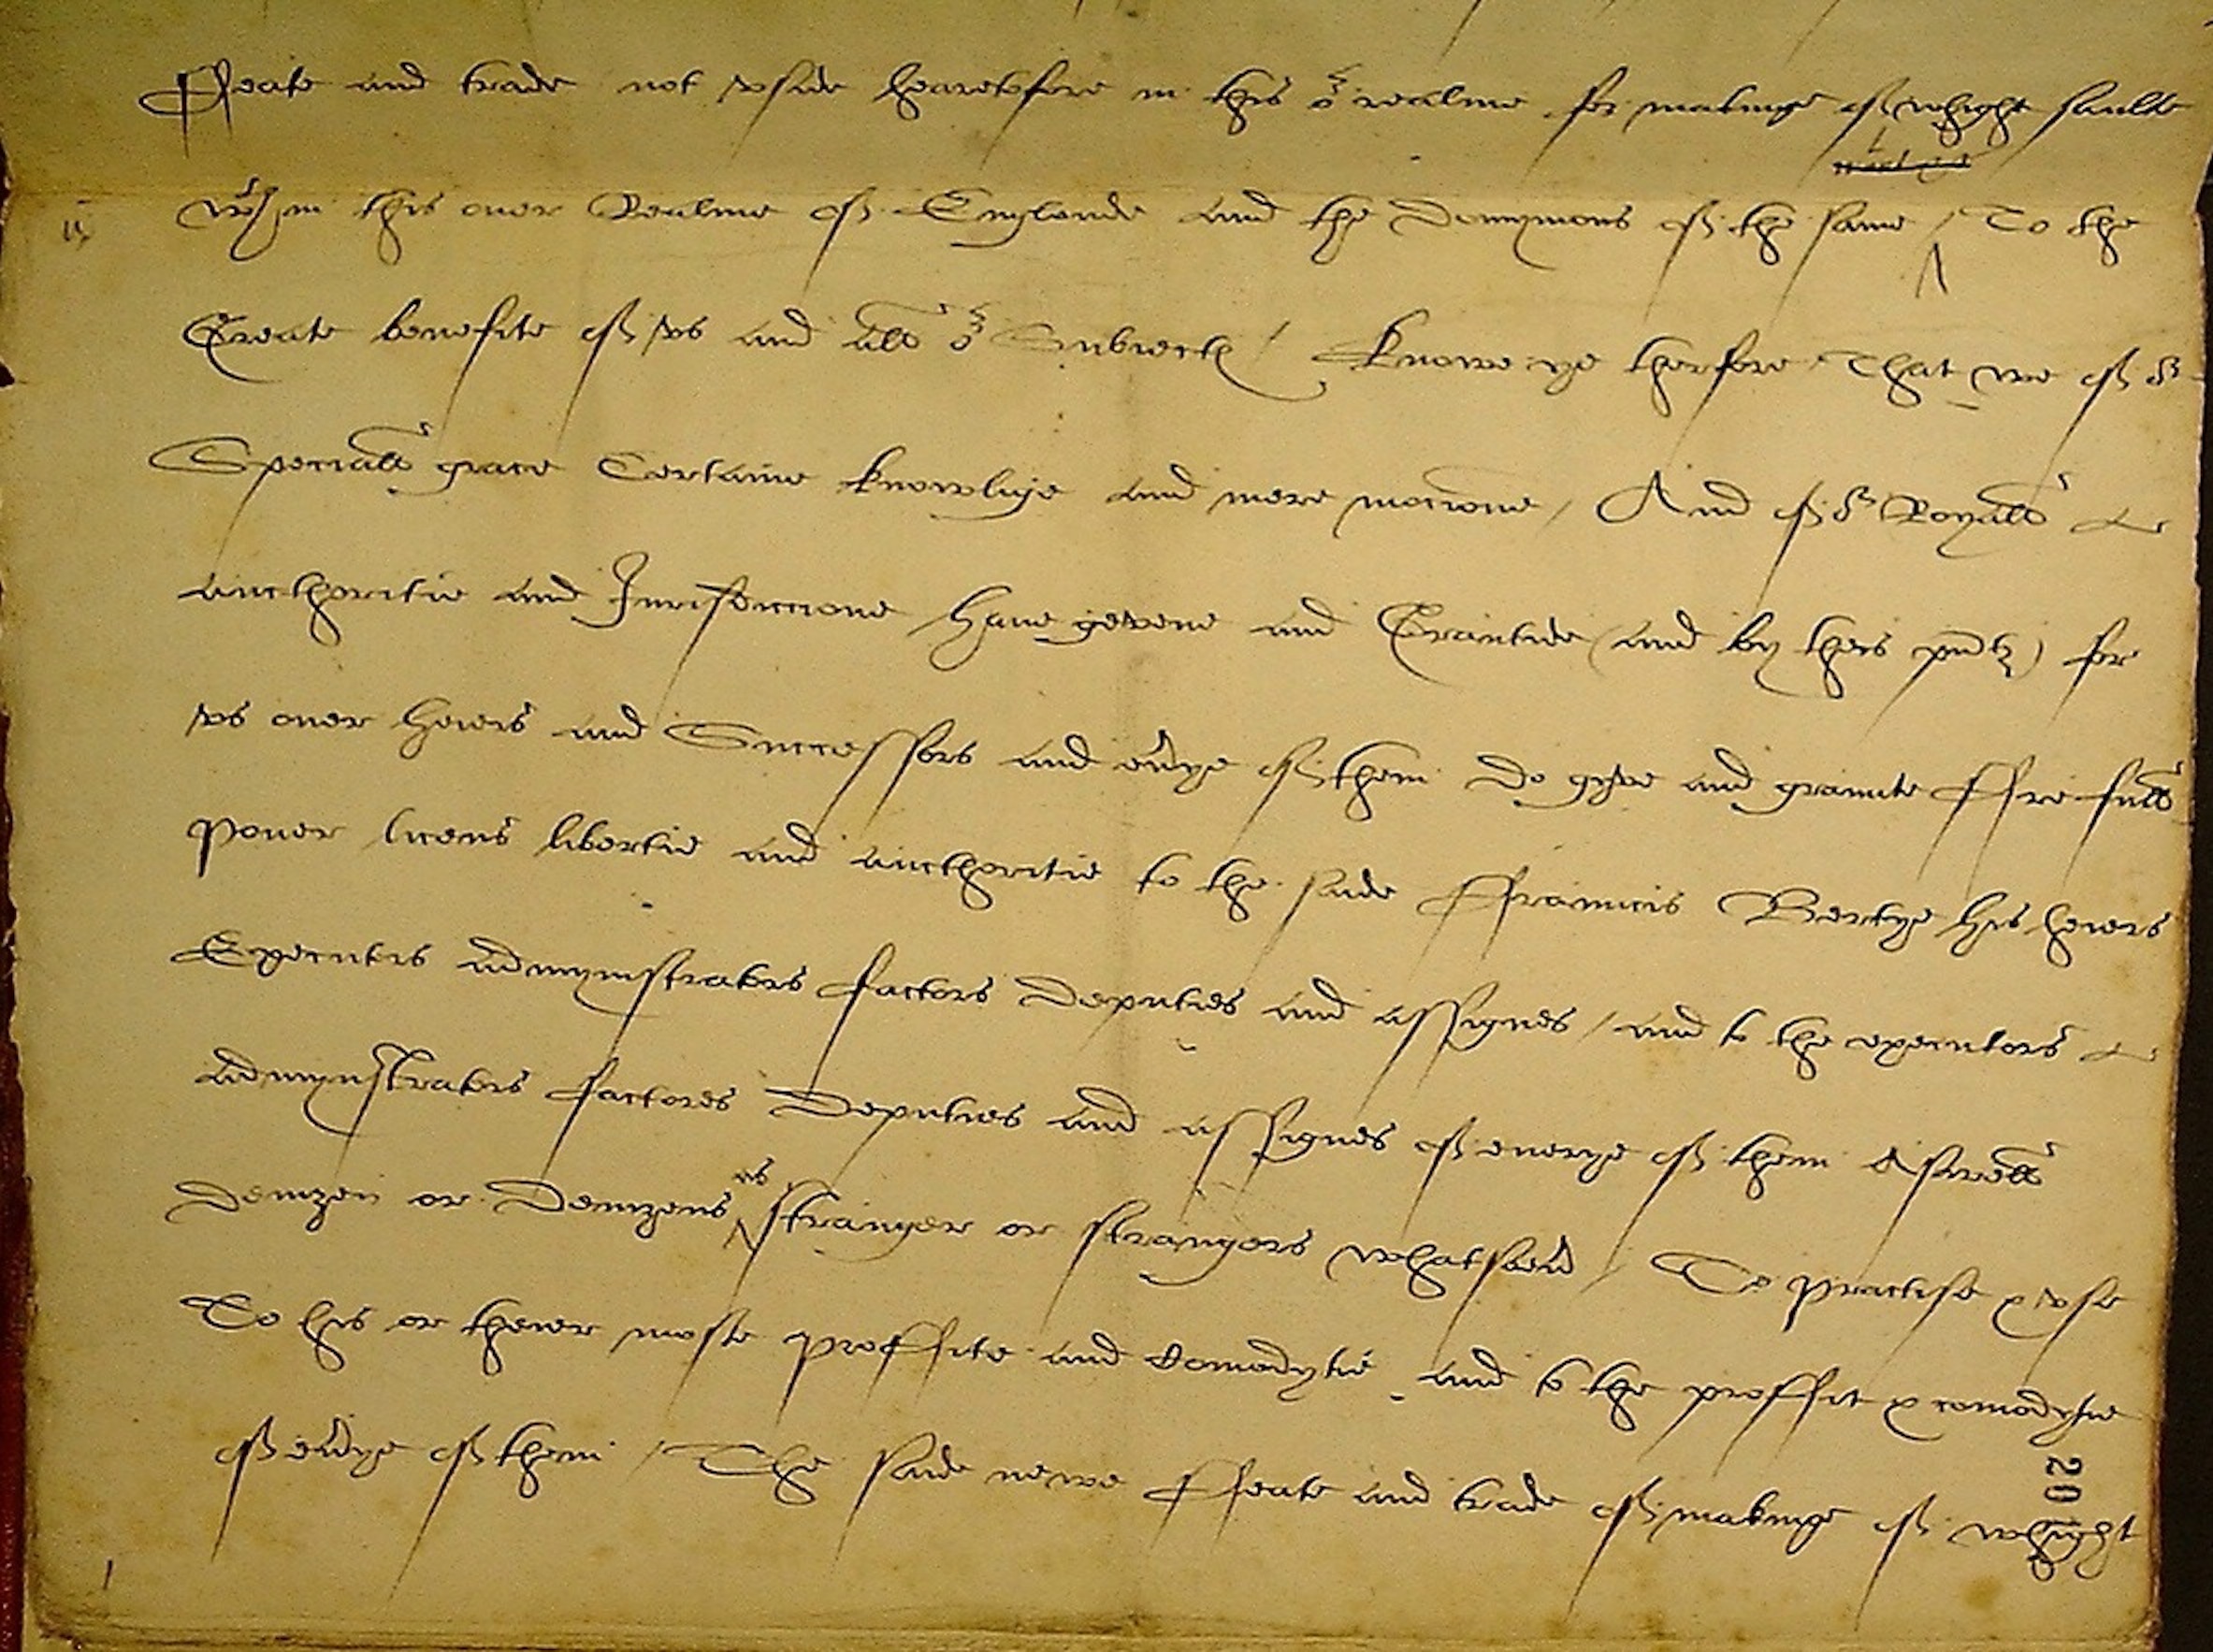 ffeate and trade not vside hearetofore in this or realme for makinge of whight saulte
wthin this ouer Realme of Englande and the Domynions of the same / To the
Greate benefite of vs and all or Subiectes / Knowe ye therfore That we of or
Speciall grace Certaine knowlige and mere mocione / And of or Royall
aucthoritie and Jurisdiccione haue gevene and Grauntide (and by theis pntes) for
vs ouer heiers and Successors and eurye of them do gyve and graunte ffre full
Power licens libertie and aucthoritie to the saide ffrauncis Bertye his heiers
Executors admynistrators factors Deputies and assignes / and to the executors
admynistrators factores Deputies and assignes of euerye of them Aswell
Denizen or Denizens as stranger or strangers whatsoeuer / To practise & vse
To his or theier moste proffite and Comodytie and to the proffit & comodytie
of eurye of them / The saide newe ffeate and trade of makinge of whight
20